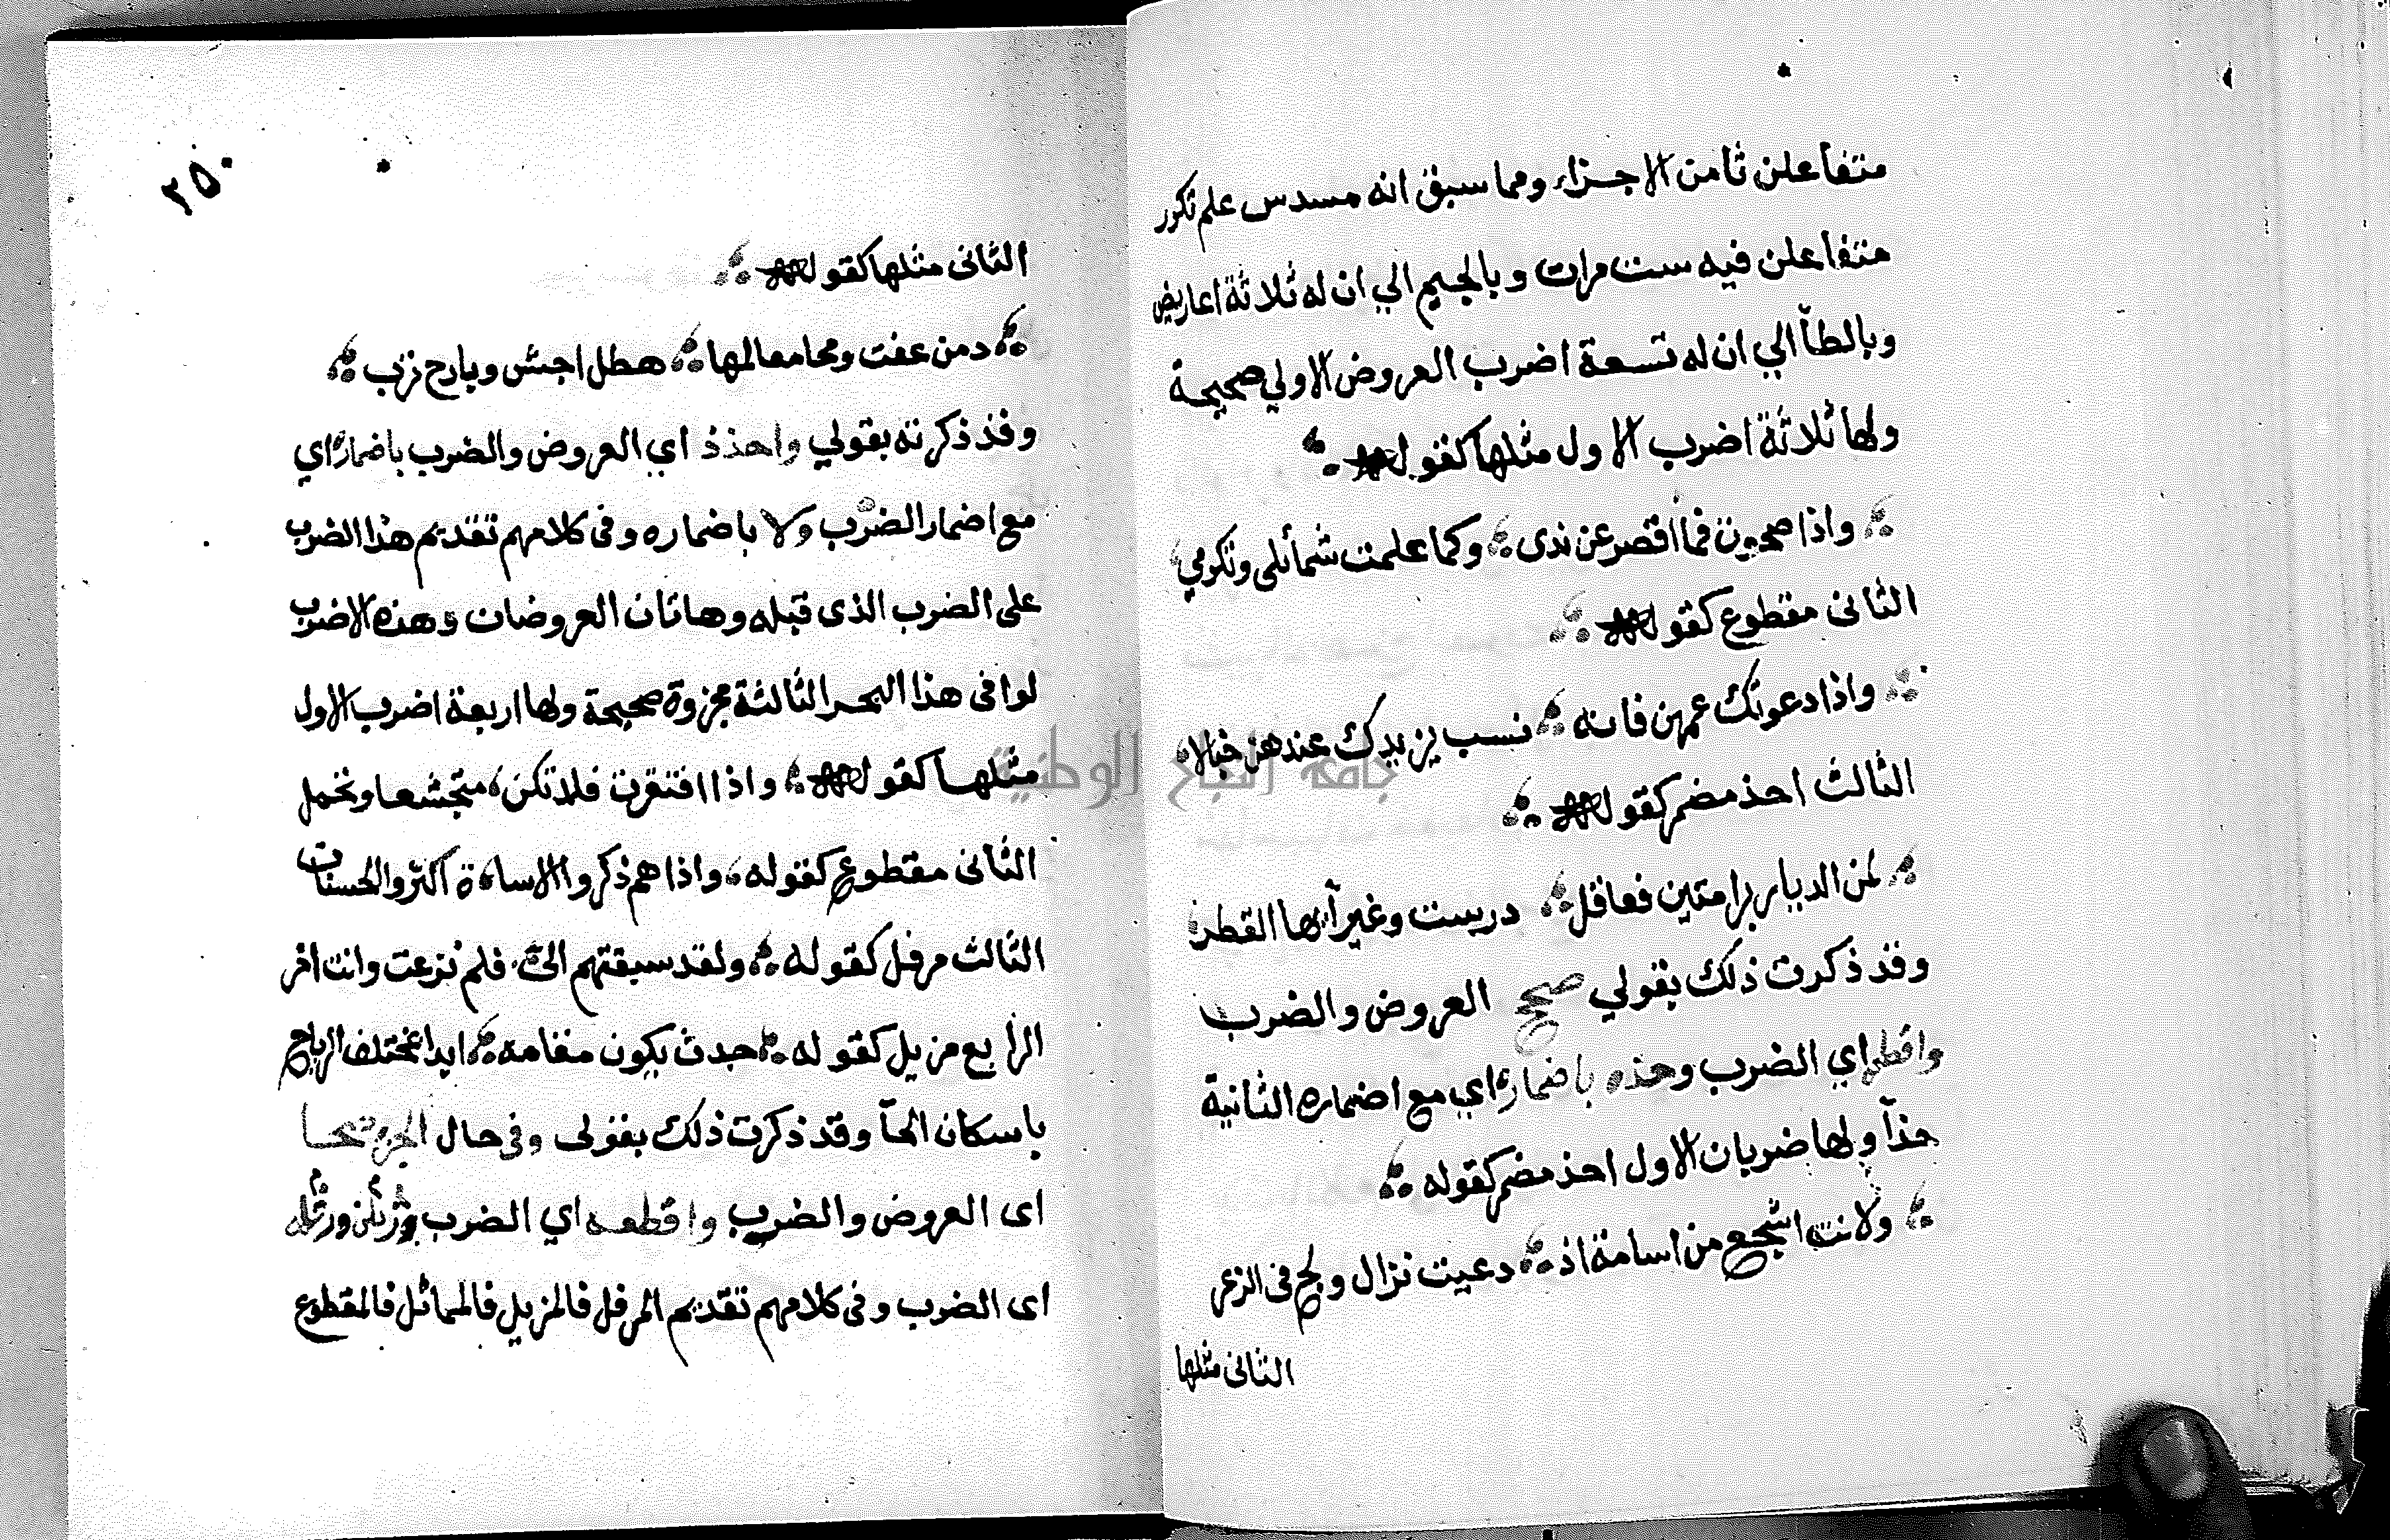 متفاعلن ثامن الاجزاء ومما سبق انه مسدس علم تكرر
متفاعلن فيه ست مرات وبالجيم الي ان له ثلاثة اعاريض
وبالطآ الي ان له تسعة اضرب العروض الاولي صحيحة
ولها ثلاثة اضرب الاول مثلها كقوله
واذا صحوت فما اقصر عن ندى وكما علمت شمائلى وتكرمي
الثانى مقطوع كقوله
واذا دعونك عمهن فانه نسب يزيدك عندهن خبالا
الثالث احذ مضمر كقوله
لمن الديار برامتين فعاقل درست وغير آيها القطر
وقد ذكرت ذلك بقولي صحح العروض والضرب
واقطع اي الضرب وحذه باضماره اي مع اضماره الثانية
حذآ ولها ضربان الاول احذ مضمر كقوله
ولانت اشجع من اسامة اذ دعيت نزال ولج فى الذعر
الثانى مثلها
٢٥٠
الثانى مثلها كقوله
دمن عفت ومحا معالمها هطل اجش وبارح ترب
وقد ذكرته بقولي واحذذ اي العروض والضرب باضماره اي
مع اضمار الضرب ولا باضماره وفى كلامهم تقديم هذا الضرب
على الضرب الذى قبله وهاتان العروضان وهذه الاضرب
لوافى هذا البحر الثالثة مجزوة صحيحة ولها اربعة اضرب الاول
مثلها كقوله واذا افتقرت فلا تكن متجشعا وتجمل
الثانى مقطوع كقوله واذا هم ذكروا الاساءة اكثروا الحسنات
الثالث مرفل كقوله ولقد سبقتهم الي فلم نزعت وانت اخر
الرابع مزيل كقوله جدث يكون مقامه ابدا بمختلف الرياح
باسكان الحآ وقد ذكرت ذلك بقولى وفى حال الجزء صححا
اى العروض والضرب واقطعه اي الضرب
اى الضرب وفى كلامهم تقديم المرفل فالمزيل فالمماثل فالمقطوع
جامعة النجاح الوطنية